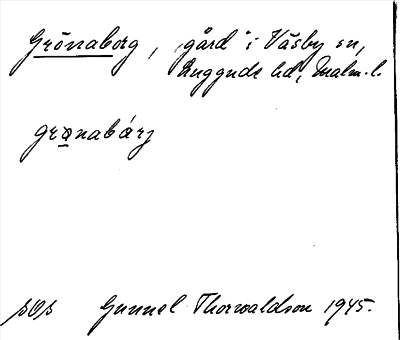 Grönaborg, gård i Väsby sn,
Luggude hd, Malm. l.
grønabárj
SOS Gunnel Thorwaldson 1945.